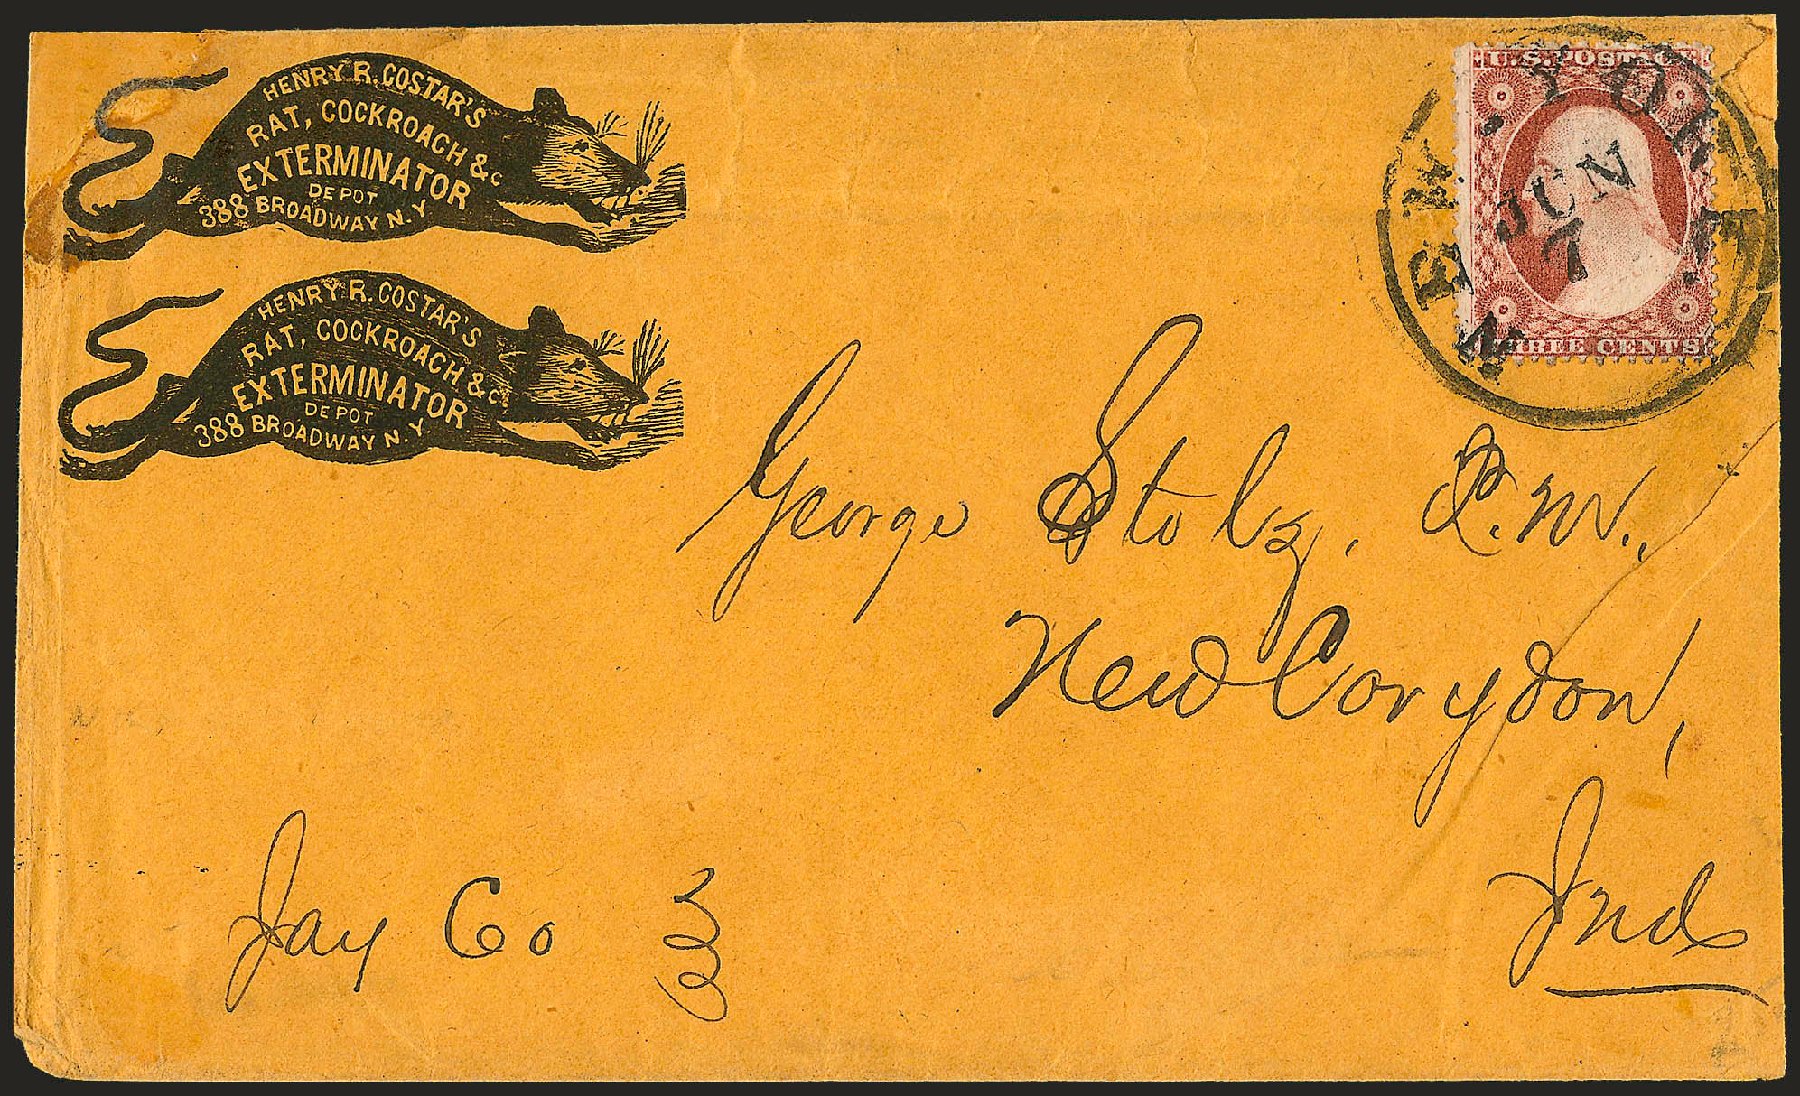 HENRY R. COSTAR'S
RAT, COCKROACH & c
EXTERMINATOR
DEPOT
388 BROADWAY N.Y
HENRY R. COSTAR'S
RAT, COCKROACH & c
EXTERMINATOR
DEPOT
388 BROADWAY N.Y
U.S. POSTAGE
THREE CENTS
NEW-YORK
JUN
7
George Stolz,
New Corydon,
Ind
Jay Co